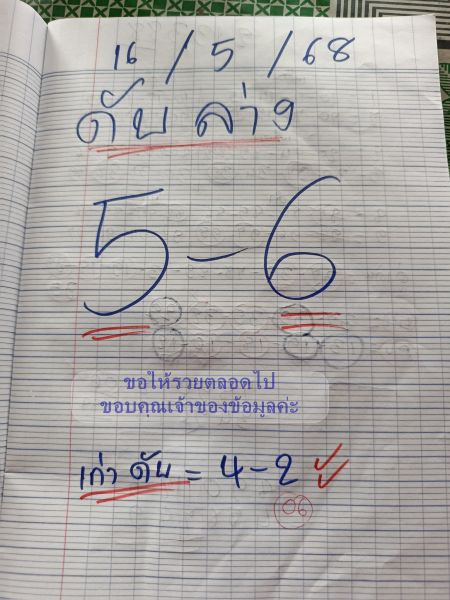 16 / 5 / 68
ดับ ล่าง
5 - 6
ขอให้รวยตลอดไป
ขอบคุณเจ้าของข้อมูลค่ะ
เก่า ดับ = 4 - 2 ✓✓
06